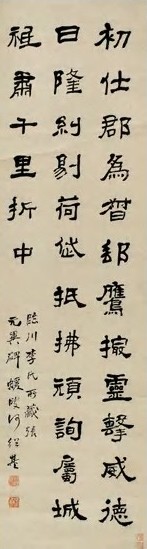 初仕郡為督郵鷹撮霊擊威德
日隆糾剔荷慝抵拂頑詢屬城
祗肅千里折中
臨川李氏所藏張
元異碑 蝯叟何紹基